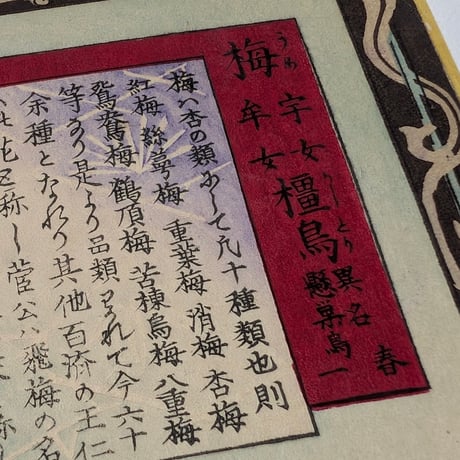 梅 宇女 橿鳥 異名 春
うめ
牟女
かしどり
懸巣鳥一
梅ハ杏の類にして凡十種類也則
紅梅 絲萼梅 重葉梅 消梅 杏梅
鴛鴦梅 鶴頂梅 苦楝烏梅 八重梅
等なり是より品類わかれて今六十
余種となれり其他百済の王仁
花と称し菅公ハ飛梅の名